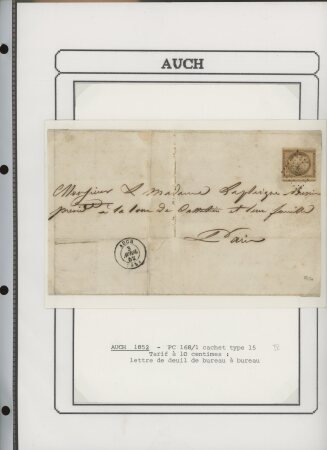 AUCH
Monsieur & Madame
à la tour de et leur famille
Paris
AUCH
52
AUCH 1852 - PC 168/1 cachet type 15
Tarif à 10 centimes :
lettre de deuil de bureau à bureau